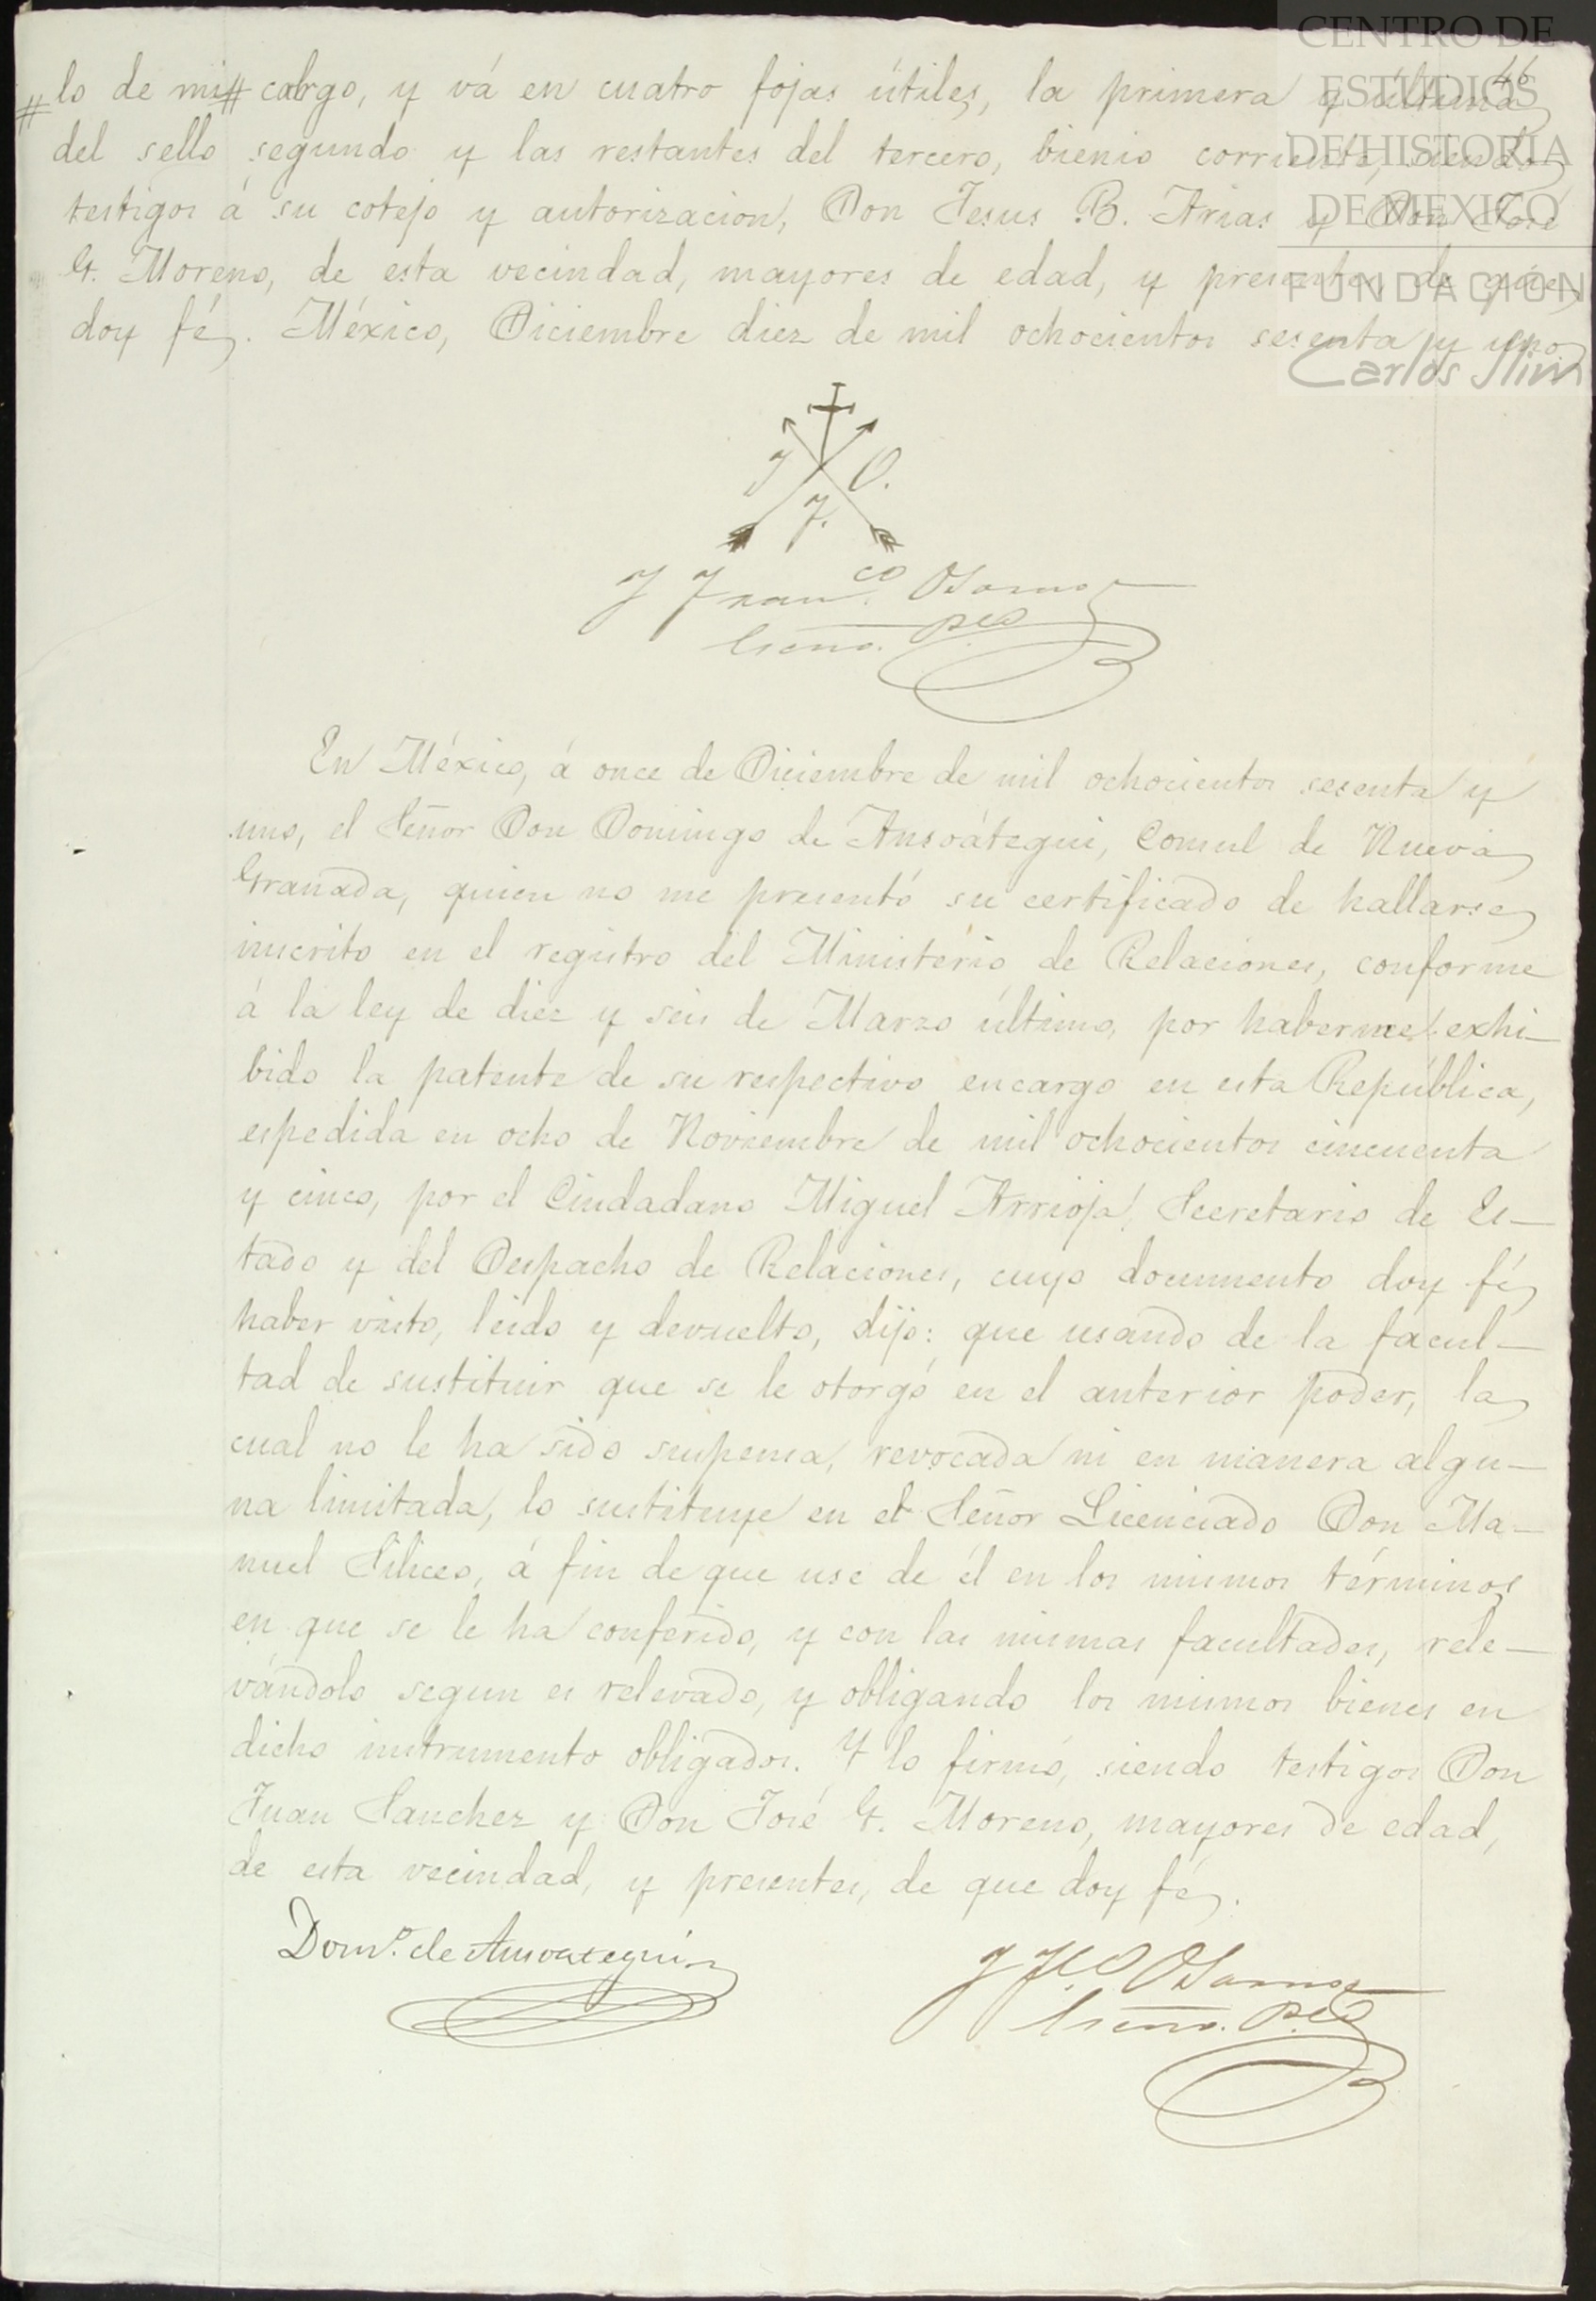 CENTRO DE
ESTUDIOS
DE HISTORIA
DE MEXICO
FUNDACION
Carlos Slim
46
lo de mi # cargo, y vá en cuatro fojas útiles, la primera y última
#
del sello segundo y las restantes del tercero, bienio corriente, siendo
testigos á su cotejo y autorizacion, Don Jesus B. Arias y Don José
G. Moreno, de esta vecindad, mayores de edad, y presentes, de que
doy fé. México, Diciembre diez de mil ochocientos sesenta y uno
J O.
F.
J Fran.co
Escno. pco
En México, á once de Diciembre de mil ochocientos sesenta y
uno, el Señor Don Domingo de Ansoátegui, Consul de Nueva
Granada, quien no me presentó su certificado de hallarse
inscrito en el registro del Ministerio de Relaciones, conforme
á la ley de diez y seis de Marzo último, por haberme exhi-
bido la patente de su respectivo encargo en esta República,
espedida en ocho de Noviembre de mil ochocientos cincuenta
y cinco, por el Ciudadano Miguel Arrioja, Secretario de Es-
tado y del Despacho de Relaciones, cuyo documento doy fé
haber visto, leido y devuelto, dijo: que usando de la facul-
tad de sustituir que se le otorgó en el anterior poder, la
cual no le ha sido suspensa, revocada ni en manera algu-
na limitada, lo sustituye en el Señor Licenciado Don Ma-
nuel Siliceo, á fin de que use de él en los mismos términos
en que se le ha conferido, y con las mismas facultades, rele-
vándolo segun es relevado, y obligando los mismos bienes en
dicho instrumento obligados. Y lo firmó, siendo testigos Don
Juan Sanchez y Don José G. Moreno, mayores de edad,
de esta vecindad, y presentes, de que doy fé.
Domo. de Ansoategui
J Fco
Escno. pco